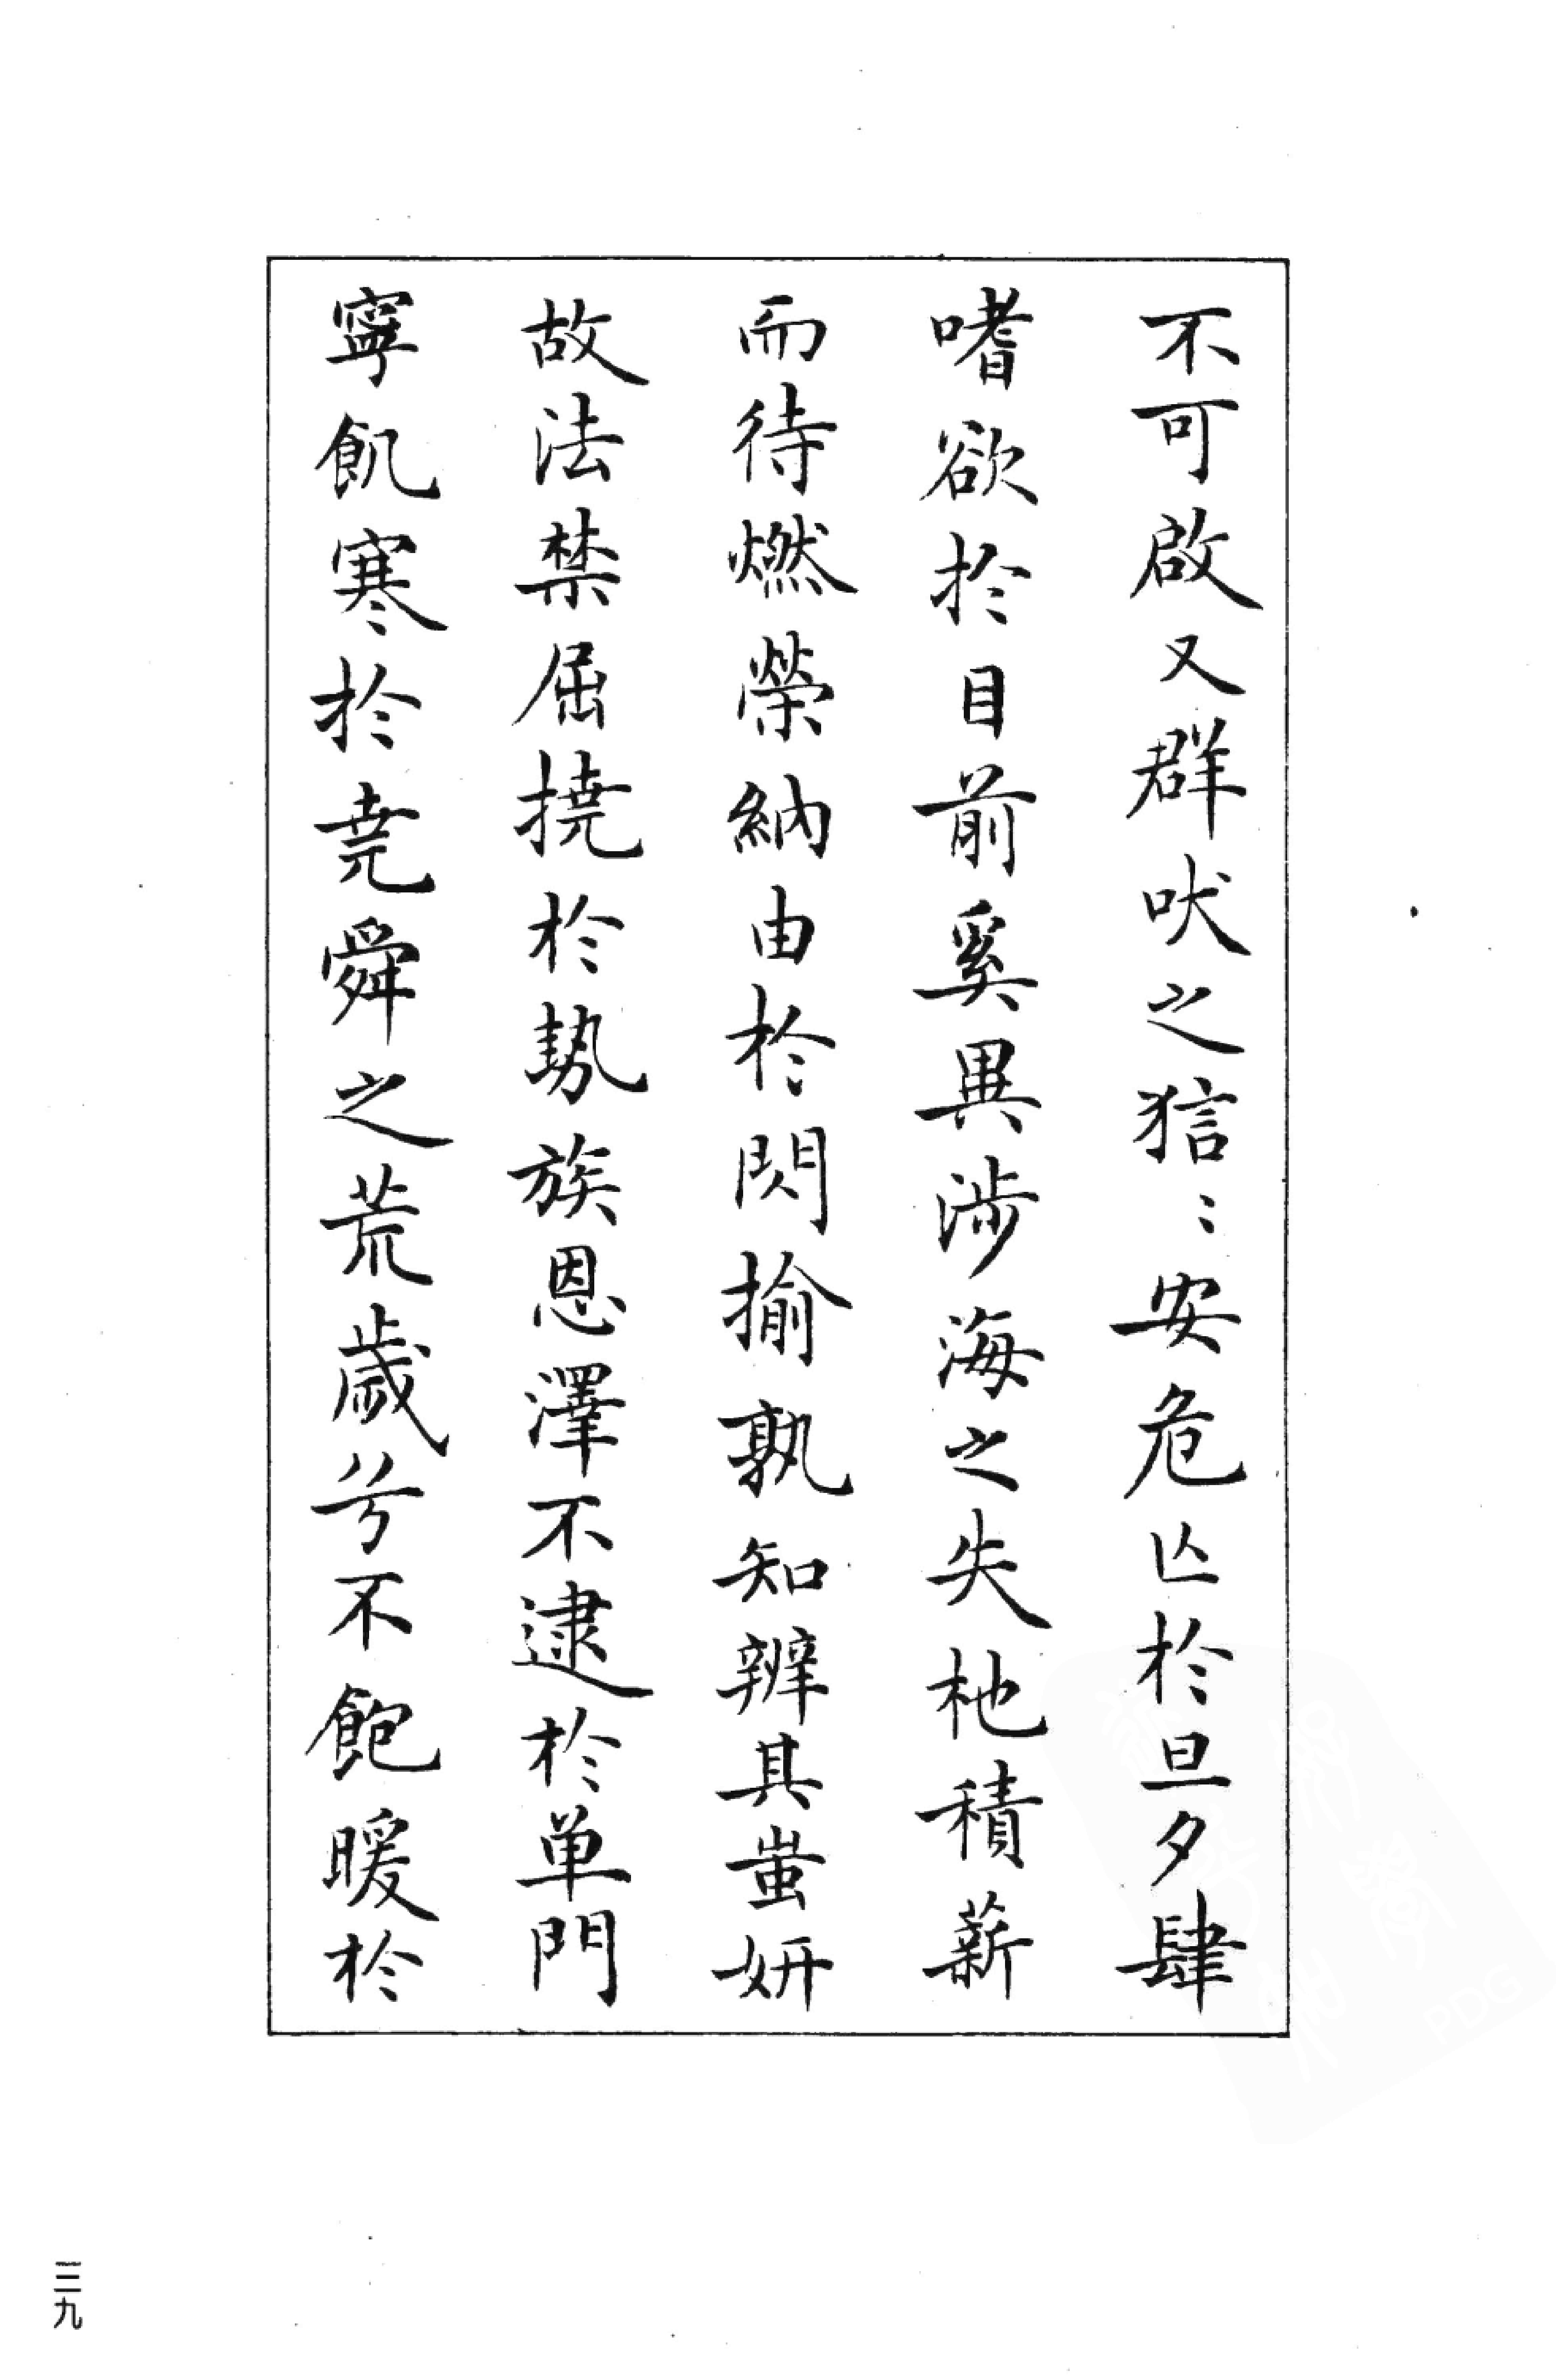 不可啟又群吠之狺〻安危亾於旦夕肆
嗜欲於目前奚異涉海之失柂積薪
而待燃榮納由於閃揄孰知辨其蚩妍
故法禁屈撓於勢族恩澤不逮於单門
寧飢寒於尭舜之荒歲兮不飽暖於
三九